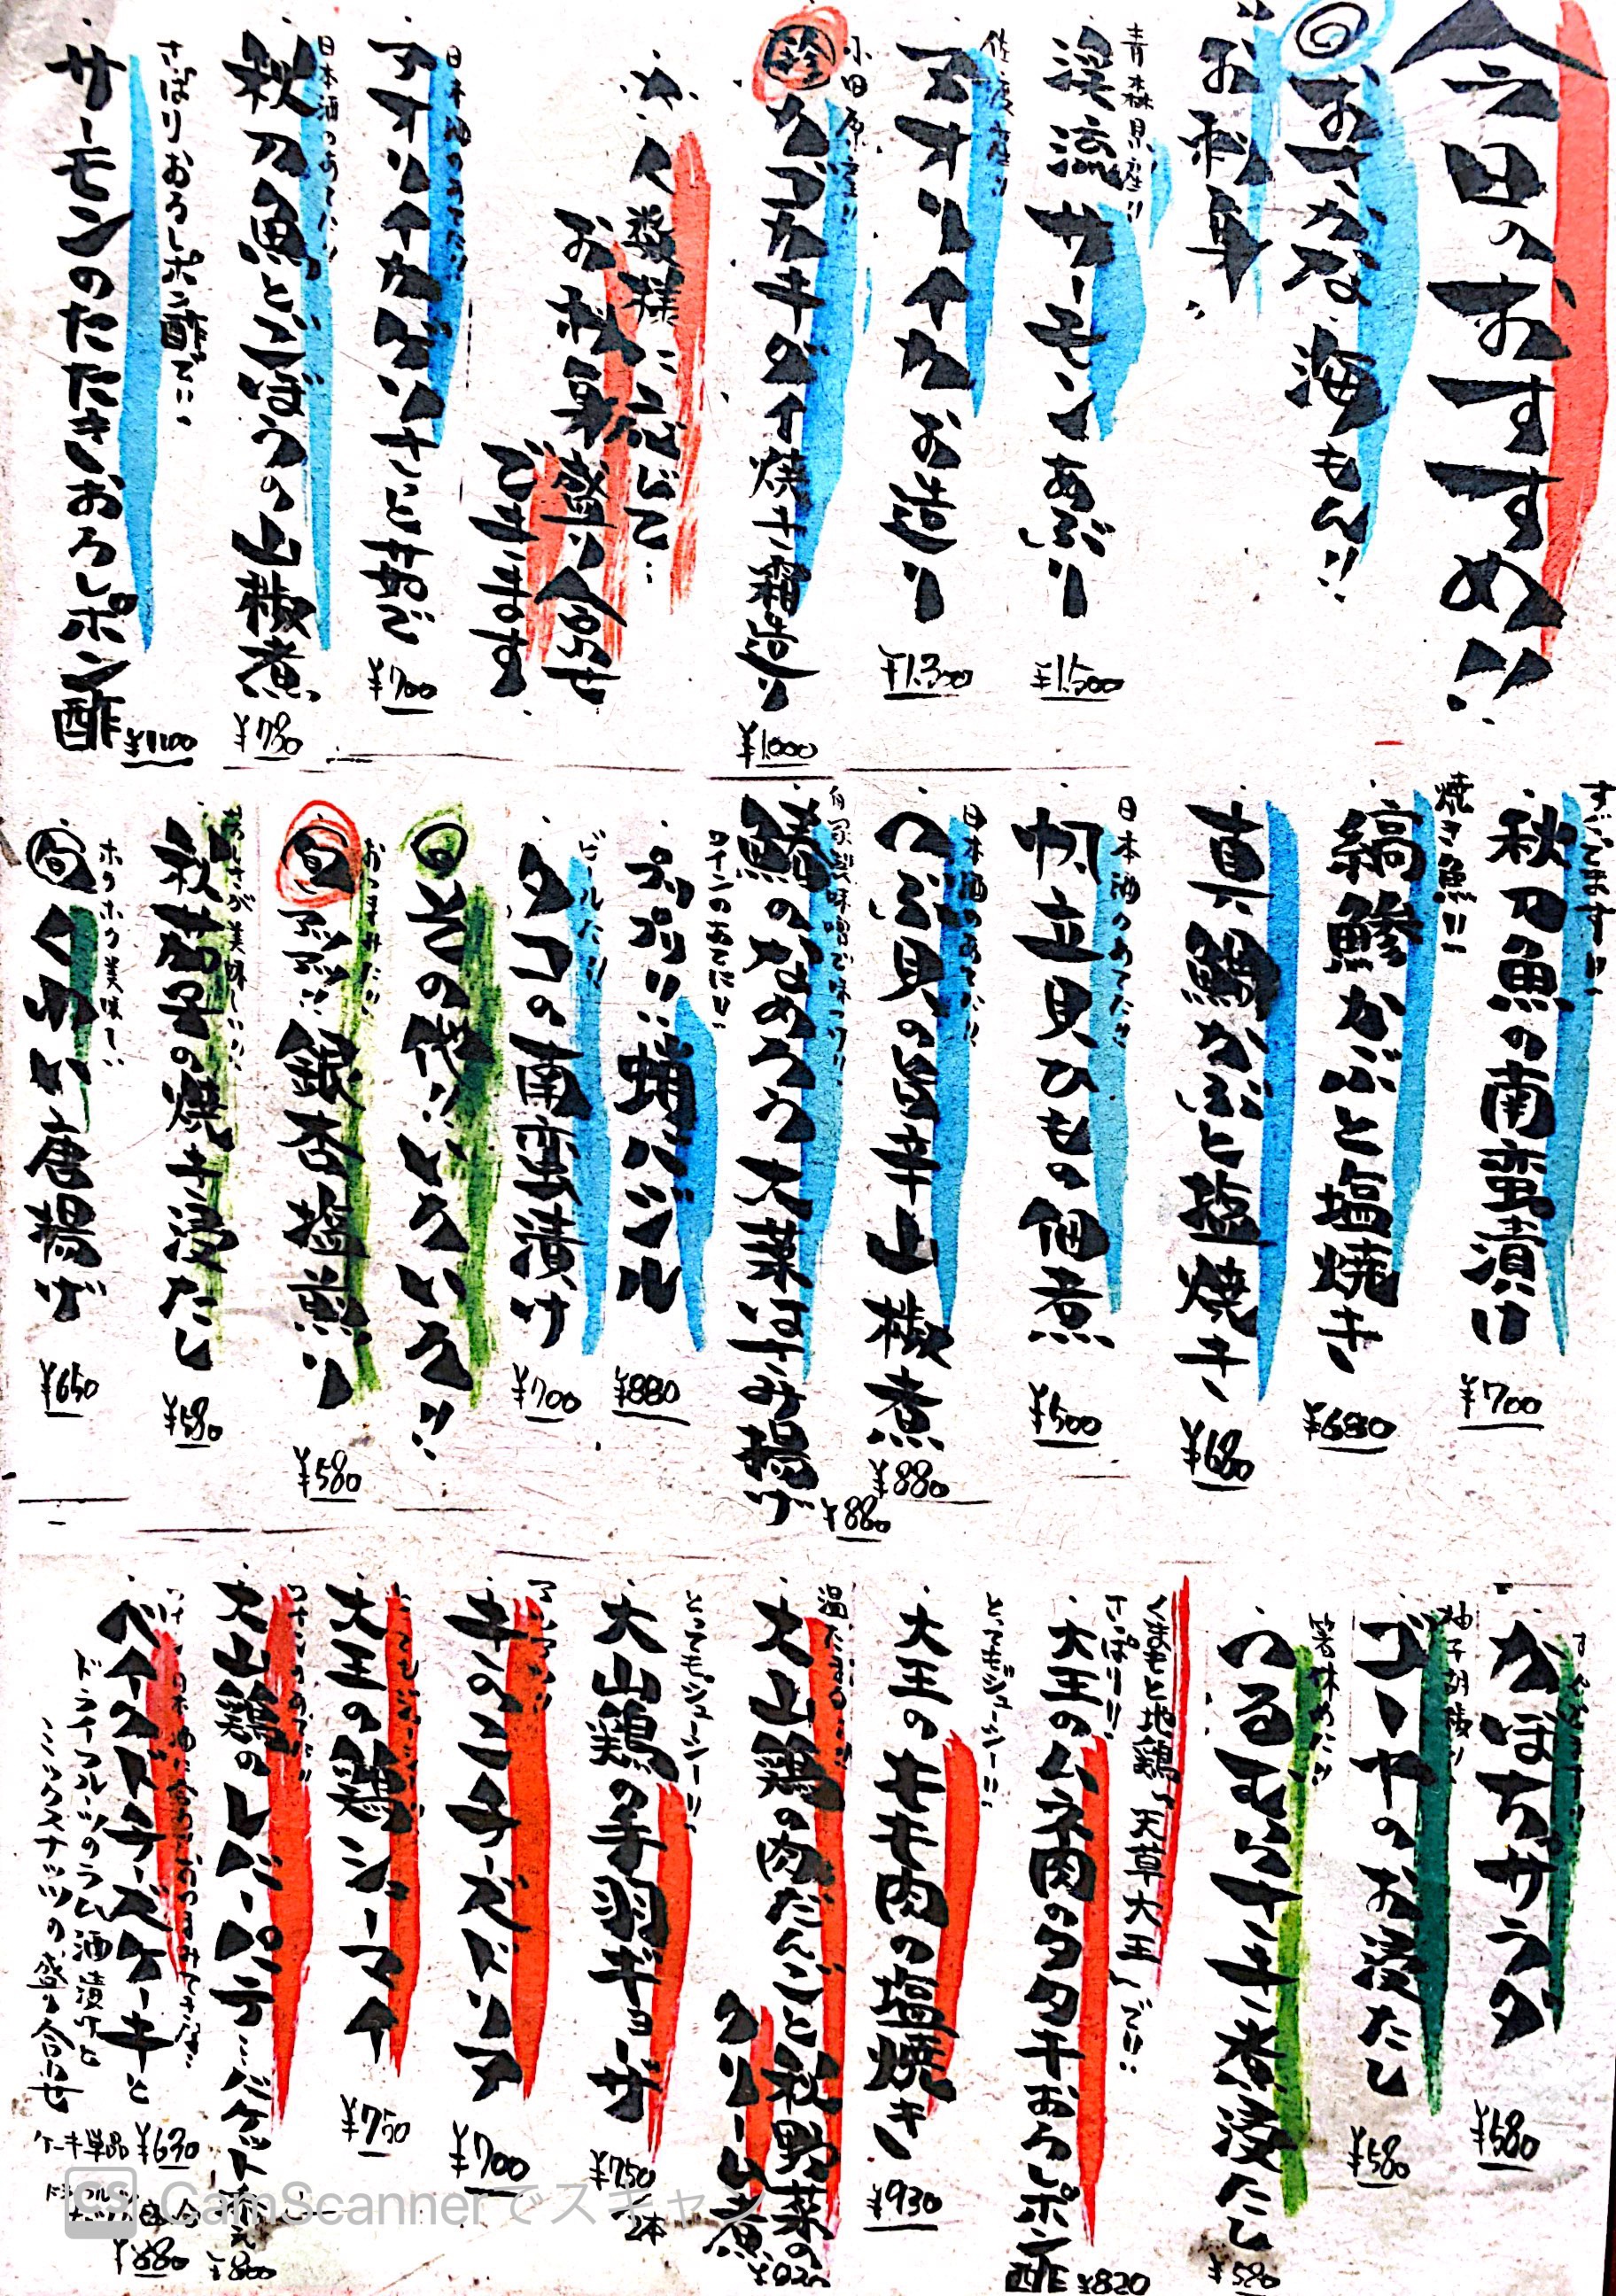 今日のおすすめ!!
旬おさかな、海もん!!
お刺身
青森県産!!
渓流サーモンあぶり
¥1,500
佐渡産!!
アオリイカお造り
¥1,300
小田原産!!
珍カゴカキダイ焼き霜造り
¥1,000
人数様に応じて…
お刺身盛り合わせ
できます
日本酒のあてに!!
アオリイカゲソ
¥700
日本酒のあてに!!
秋刀魚とごぼうの山椒煮
¥780
さっぱりおろしポン酢で…
サーモンのたたきおろしポン酢
¥1100
すぐでます!!
秋刀魚の南蛮漬け
¥700
焼き魚!!
縞鯵かぶと塩焼き
¥680
真鯛かぶと塩焼き
¥680
日本酒のあてに!!
帆立貝ひもの佃煮
¥500
日本酒のあてに!!
つぶ貝の旨辛山椒煮
¥880
鯵のなめろう大葉はさみ揚げ
¥880
ワインのあてに!!
プリプリ!!蛸バジル
¥880
ビールに!!
タコの南蛮漬け
¥700
旬その他!!いろいろ!!
おつまみに!!
旬銀杏塩煎り
¥580
秋茄子の焼き浸たし
¥580
ホクホク美味しい
旬くわい唐揚げ
¥650
かぼちゃサラダ
¥580
柚子胡椒
ゴーヤのお浸たし
¥580
箸休めに!!
つるむらさき煮浸たし
¥580
くまもと地鶏「天草大王」です!!
さっぱり!!
大王のムネ肉のタタキおろしポン酢
¥820
とってもジューシー!!
大王のモモ肉の塩焼き
¥930
大山鶏の肉だんごと秋野菜の
クリーム煮
とってもジューシー!!
大山鶏の手羽ギョーザ
¥750
2本
アツアツ!!
きのこチーズドリア
¥700
大王の鶏シューマイ
¥750
ワインのあてに!!
大山鶏のレバーパテ…バケット添え
¥800
ベイクドチーズケーキと
ドライフルーツのラム酒漬けと
ミックスナッツの盛り合わせ
ケーキ単品 ¥630
¥880
CS CamScannerでスキャン